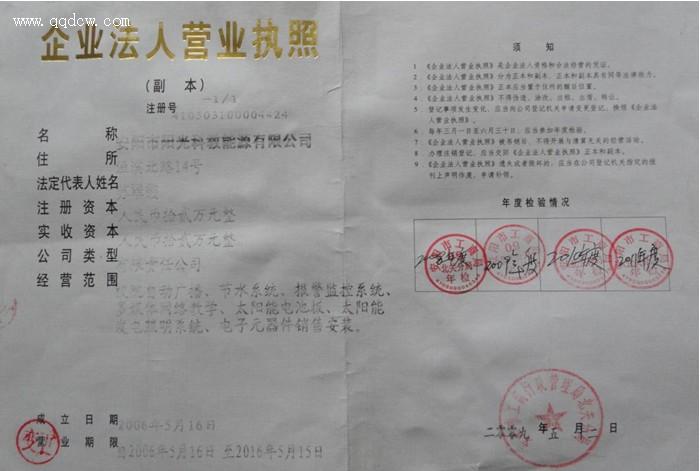 www.qqdcw.com
企业法人营业执照
（副 本）
-1/1
注册号
410503100004424
名 称
安阳市阳光科教能源有限公司
住 所
北路14号
法定代表人姓名
注册资本
人民币拾贰万元整
实收资本
人民币拾贰万元整
公司类型
有限责任公司
经营范围
自动广播、节水系统、报警监控系统、
多媒体网络教学、太阳能电池板、太阳能
发电照明系统、电子元器件销售安装。
成 立 日 期
2006年5月16日
营 业 期 限
自2006年5月16日 至2016年5月15日
须 知
1 《企业法人营业执照》是企业法人资格和合法经营的凭证。
2 《企业法人营业执照》分为正本和副本，正本和副本具有同等法律效力。
3 《企业法人营业执照》正本应当置于住所的醒目位置。
4 《企业法人营业执照》不得伪造、涂改、出租、出借、转让。
5 登记事项发生变化，应当向公司登记机关申请变更登记，换领《企业法
人营业执照》。
6 每年三月一日至六月三十日，应当参加年度检验。
7 《企业法人营业执照》被吊销后，不得开展与清算无关的经营活动。
8 办理注销登记，应当交回《企业法人营业执照》正本和副本。
9 《企业法人营业执照》遗失或者毁坏的，应当在公司登记机关指定的报
刊上声明作废，申请补领。
年度检验情况
2008年度
2009年度
2010年度
2011年度
年检
年检
年检
年检
工商行政管理局北关分局
二零零九 年 五 月 日